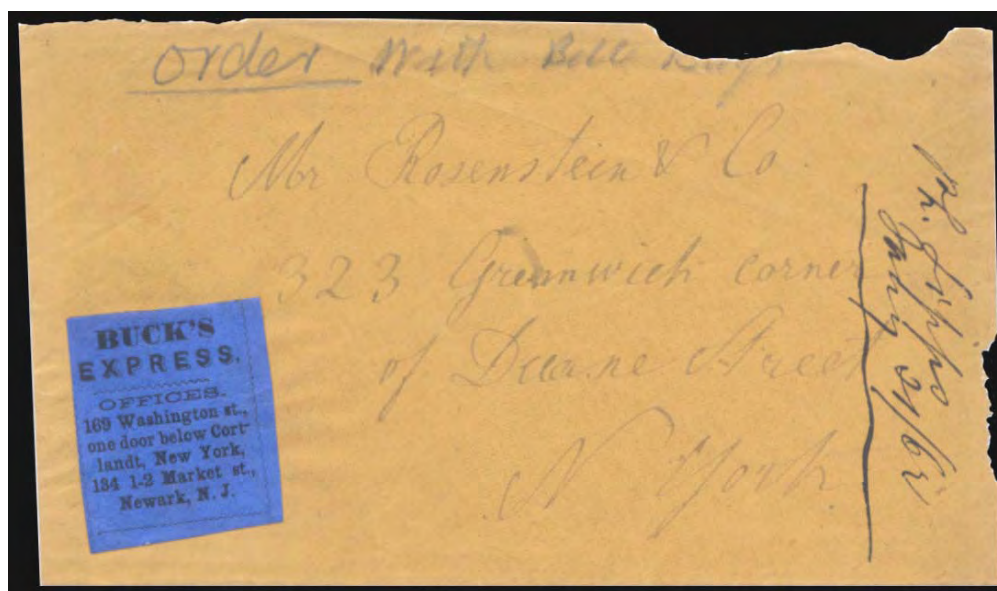 order With Bill
Mr Rosenstein & Co.
323 Greenwich corner
of Duane Street
N York
BUCK'S
EXPRESS.
OFFICES.
169 Washington st.,
one door below Cort-
landt, New York,
134 1-2 Market st.,
Newark, N. J.